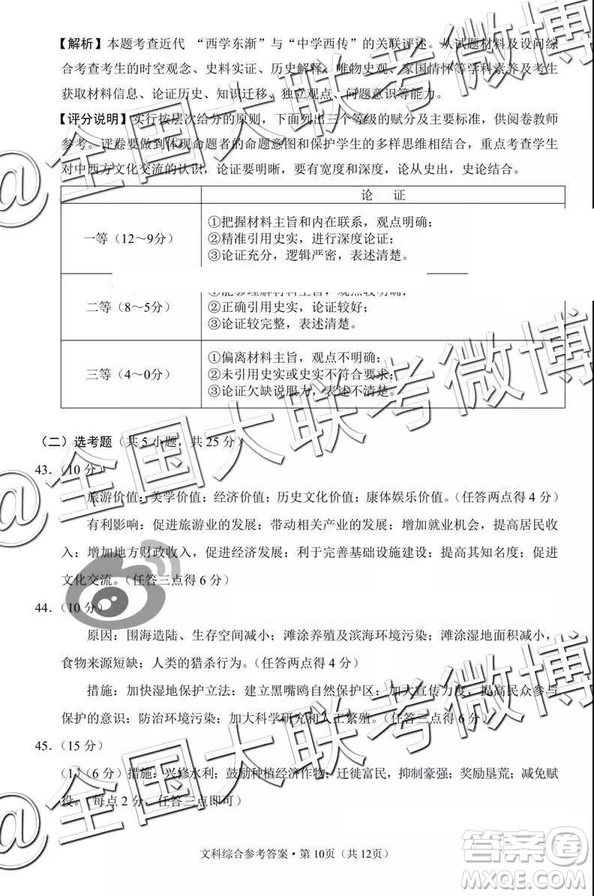 【解析】本题考查近代 “西学东渐”与“中学西传”的关联评述。从试题材料及设问综
合考查考生的时空观念、史料实证、历史解释、唯物史观、家国情怀等学科素养及考生
获取材料信息、论证历史、知识迁移、独立观点、问题意识等能力。
【评分说明】实行按层次给分的原则，下面列出三个等级的赋分及主要标准，供阅卷教师
参考。评卷要做到体现命题者的命题意图和保护学生的多样思维相结合，重点考查学生
对中西方文化交流的认识，论证要明晰，要有宽度和深度，论从史出，史论结合。
论 证
一等（12～9分）
①把握材料主旨和内在联系，观点明确；
②精准引用史实，进行深度论证；
③论证充分，逻辑严密，表述清楚。
二等（8～5分）
①能够理解材料主旨，观点较明确；
②正确引用史实，论证较好；
③论证较完整，表述清楚。
三等（4～0分）
①偏离材料主旨，观点不明确；
②未引用史实或史实不符合要求；
③论证欠缺说服力，表述不清楚。
（二）选考题（共5小题，共25分）
43．（10分）
旅游价值：美学价值；经济价值；历史文化价值；康体娱乐价值。（任答两点得4分）
有利影响：促进旅游业的发展；带动相关产业的发展；增加就业机会，提高居民收
入；增加地方财政收入，促进经济发展；利于完善基础设施建设；提高其知名度；促进
文化交流。（任答三点得6分）
44．（10分）
原因：围海造陆、生存空间减小；滩涂养殖及滨海环境污染；滩涂湿地面积减小，
食物来源短缺；人类的猎杀行为。（任答两点得4分）
措施：加快湿地保护立法；建立黑嘴鸥自然保护区；加大宣传力度，提高民众参与
保护的意识；防治环境污染；加大科学研究和人工繁殖。（任答三点得6分）
45．（15分）
（1）（6分）措施：兴修水利；鼓励种植经济作物；迁徙富民，抑制豪强；奖励垦荒；减免赋
役。（每点2分，任答三点即可）
文科综合参考答案·第10页（共12页）
@全国大联考微博
@全国大联考微博
@全国大联考微博
答案圈
MXQE.COM